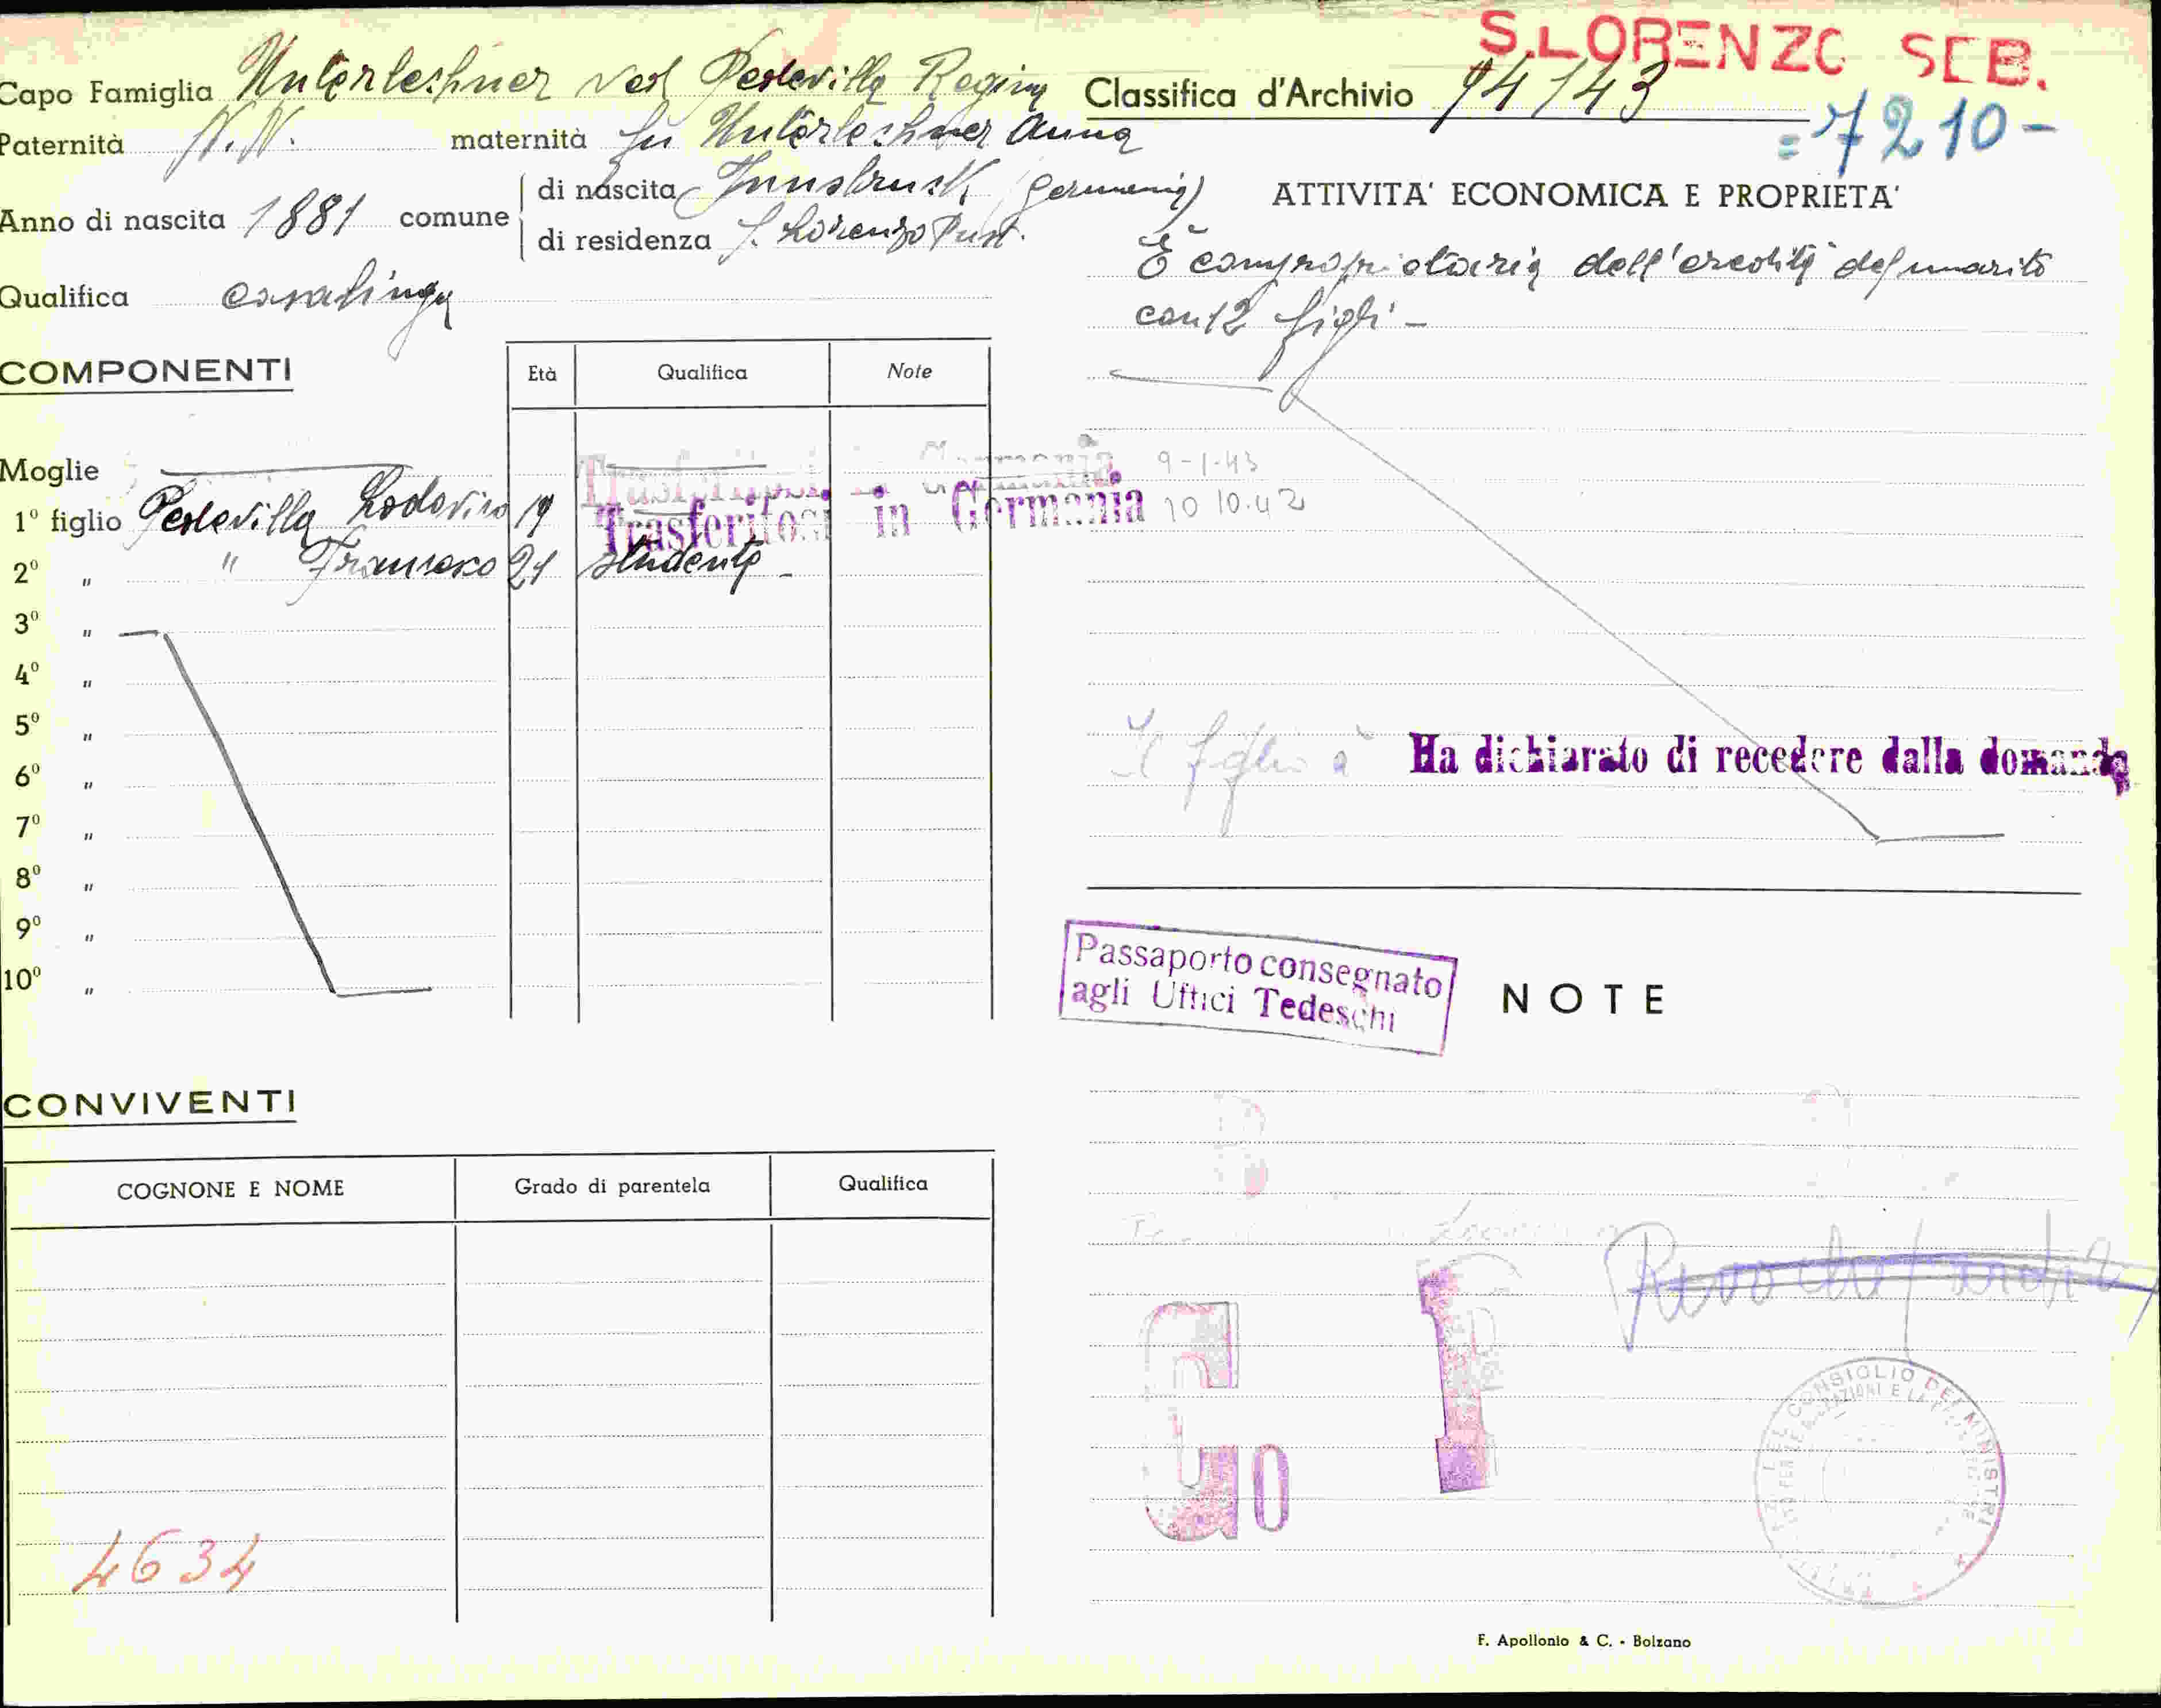 S.LORENZO SEB.
Capo Famiglia Unterleshner ved Peslavilla Regina
Classifica d'Archivio 94143
=7210-
Paternità N.N. maternità fu Unterleshner Anna
Anno di nascita 1881 comune
di nascita Innsbruck (Germania)
di residenza S. Lorenzo Pust.
Qualifica casalinga
ATTIVITA' ECONOMICA E PROPRIETA'
È comproprietaria dell'eredità del marito
con 12 figli -
COMPONENTI
Età Qualifica Note
Moglie
Trasferitosi in Germania 9-1-43
1° figlio Peslavilla Lodovico 19
Trasferitosi in Germania 10 10.42
2° " " Francesco 21 studente -
3° "
4° "
5° "
6° "
7° "
8° "
9° "
10° "
Il figlio
Ha dichiarato di recedere dalla domanda
Passaporto consegnato
agli Uffici Tedeschi
NOTE
CONVIVENTI
COGNONE E NOME Grado di parentela Qualifica
4634
G I
0
CONSIGLIO DEI MINISTRI
F. Apollonio & C. - Bolzano